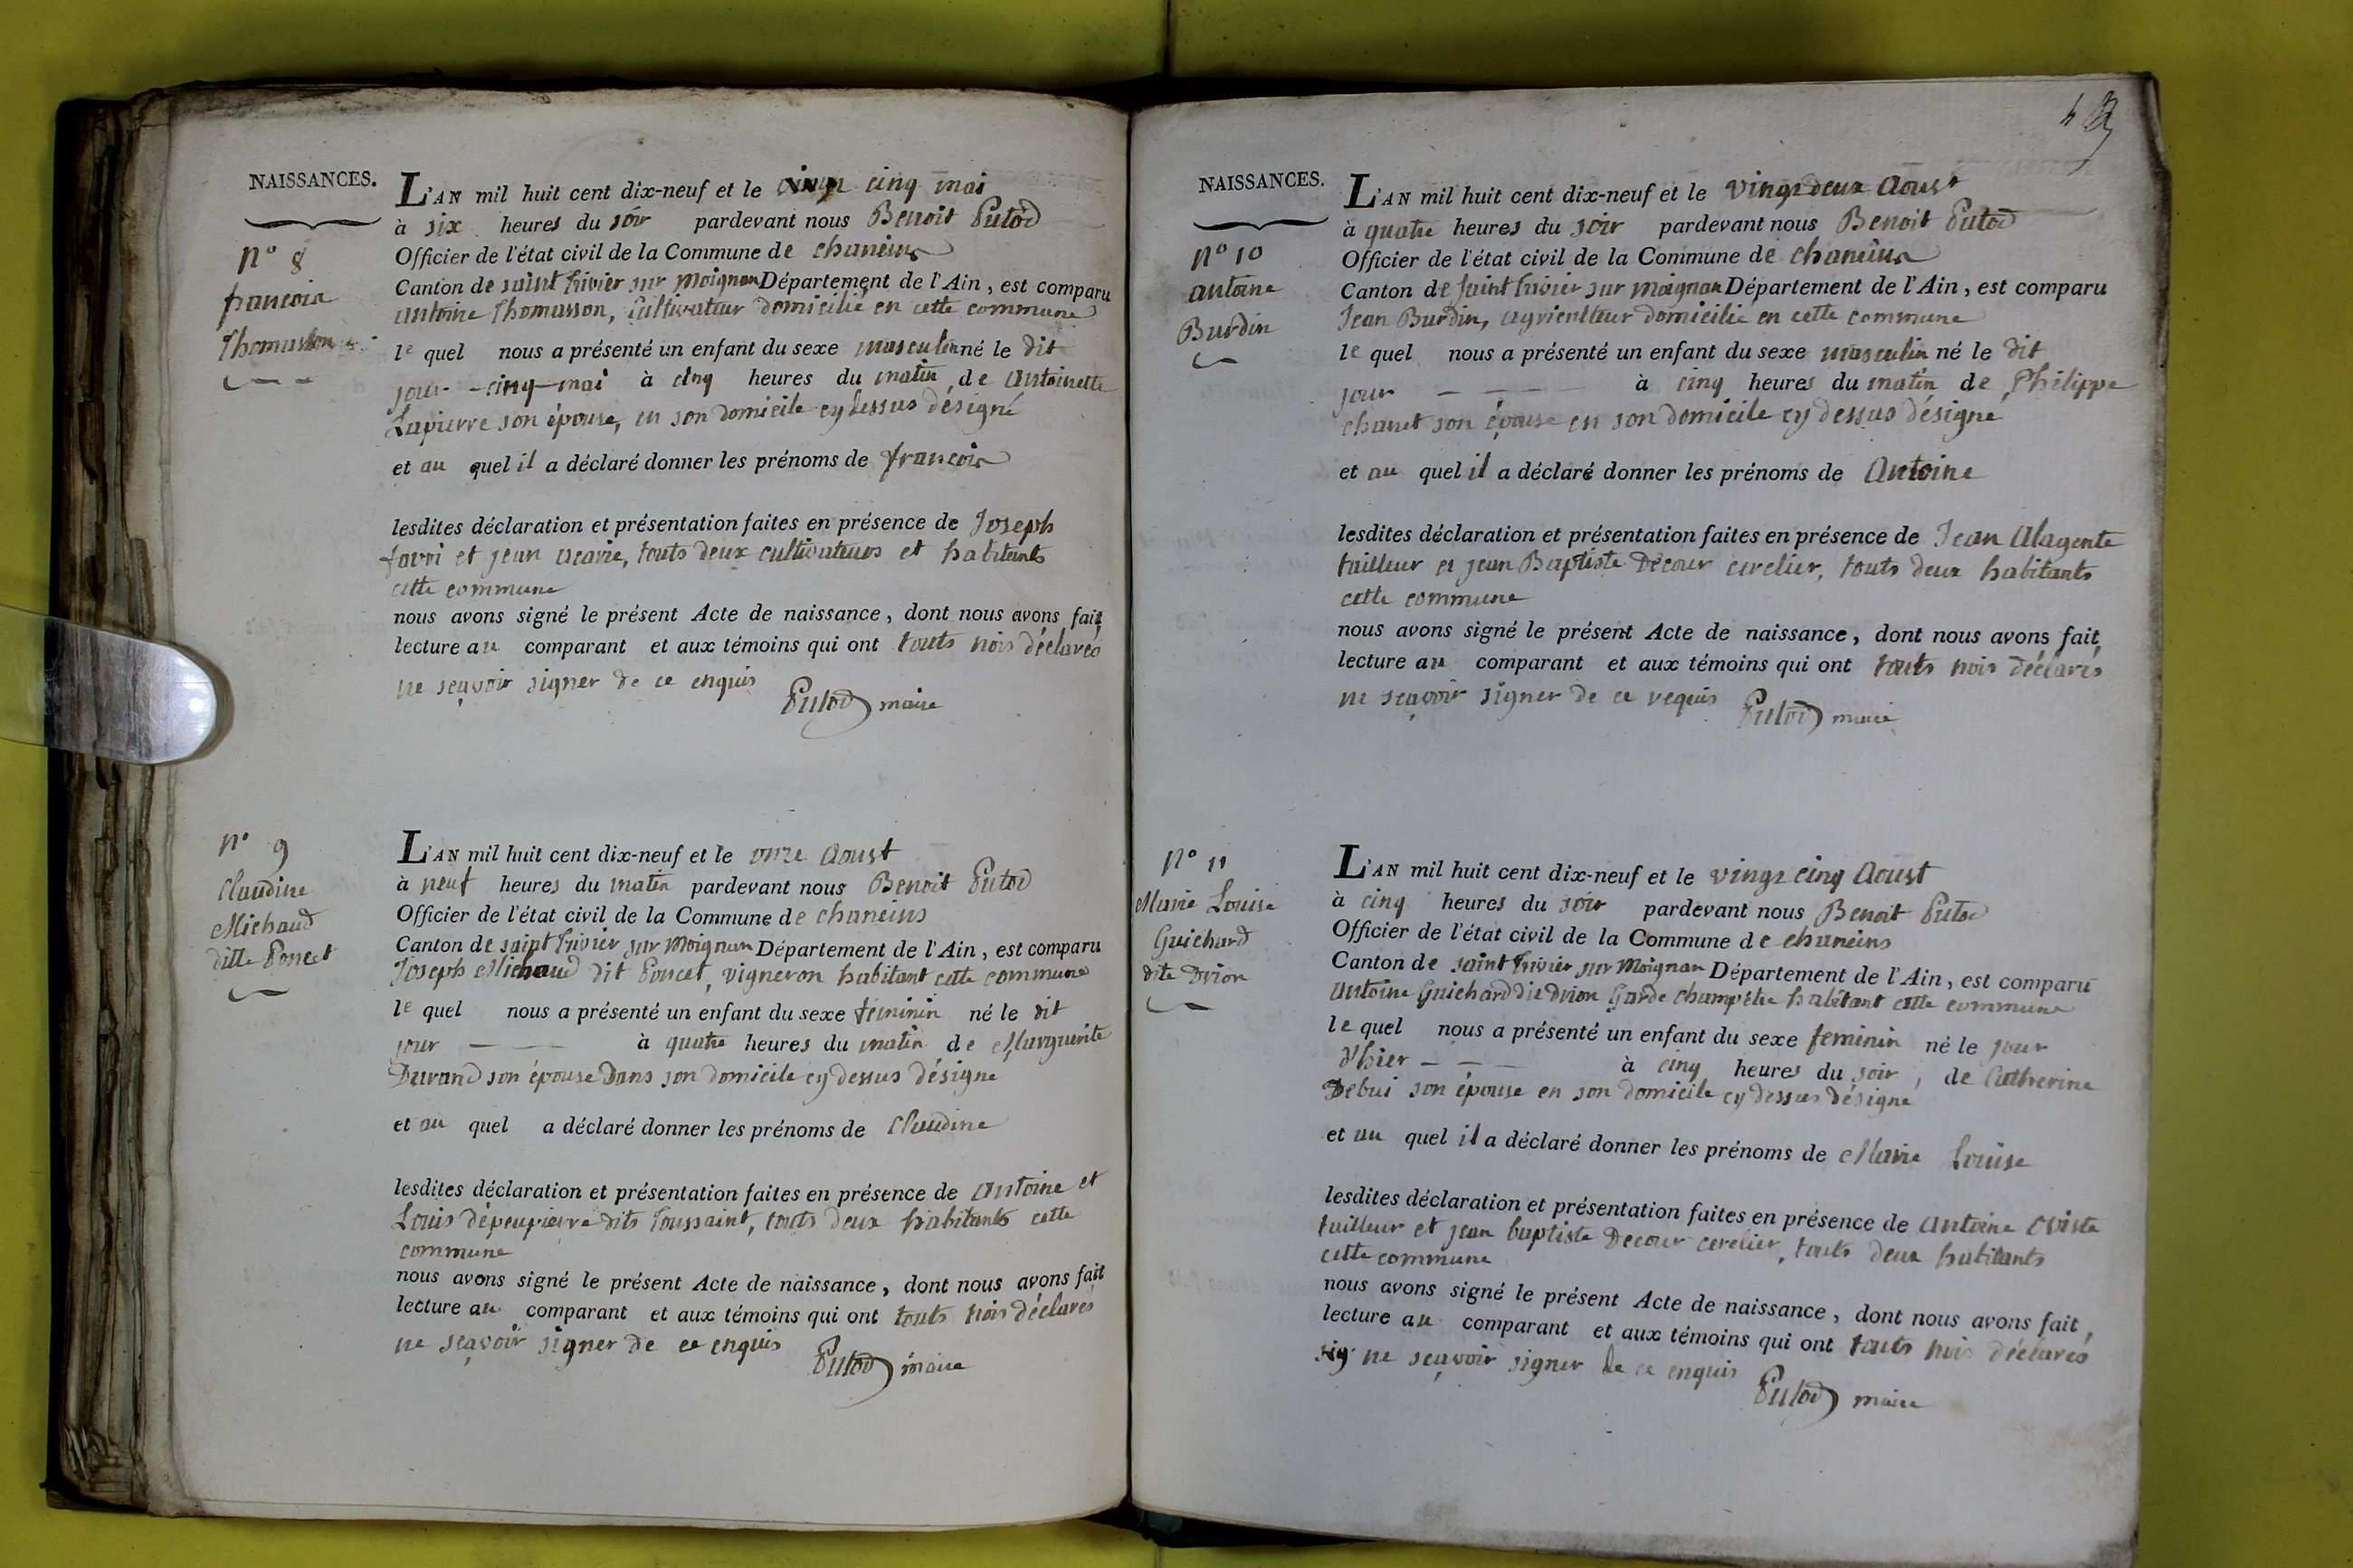 NAISSANCES.
n° 8
francois
Thomasson
L'AN mil huit cent dix-neuf et le cinq mai
à six heures du soir pardevant nous Benoit Putod
Officier de l'état civil de la Commune de chaneins
Canton de saint trivier sur moignan Département de l'Ain, est comparu
antoine Thomasson, Cultivateur domicilié en cette commune
le quel nous a présenté un enfant du sexe masculin né le dit
jour - cinq - mai à cinq heures du matin, de Antoinette
Lapierre son épouse, en son domicile cy dessus désigné
et au quel il a déclaré donner les prénoms de francois
lesdites déclaration et présentation faites en présence de Joseph
et jean touts deux cultivateurs et habitants
cette commune
nous avons signé le présent Acte de naissance, dont nous avons fait
lecture au comparant et aux témoins qui ont touts trois déclarés
ne sçavoir signer de ce enquis
Putod maire
n° 9
Claudine
Michaud
ditte Poncet
L'AN mil huit cent dix-neuf et le onze Aoust
à neuf heures du matin pardevant nous Benoit Putod
Officier de l'état civil de la Commune de chaneins
Canton de saint trivier sur moignan Département de l'Ain, est comparu
Joseph Michaud dit Poncet, vigneron habitant cette commune
le quel nous a présenté un enfant du sexe feminin né le dit
jour — — à quatre heures du matin de Marguerite
Durand son épouse Dans son domicile cy dessus désigné
et au quel a déclaré donner les prénoms de Claudine
lesdites déclaration et présentation faites en présence de Antoine et
Louis dépeupierre dits Toussaint, touts deux habitants cette
commune
nous avons signé le présent Acte de naissance, dont nous avons fait
lecture au comparant et aux témoins qui ont touts trois déclarés
ne sçavoir signer de ce enquis
Putod maire
NAISSANCES.
n° 10
antoine
Burdin
L'AN mil huit cent dix-neuf et le vingt deux Aoust
à quatre heures du soir pardevant nous Benoit Putod
Officier de l'état civil de la Commune de chaneins
Canton de saint trivier sur moignan Département de l'Ain, est comparu
Jean Burdin, agriculteur domicilié en cette commune
le quel nous a présenté un enfant du sexe masculin né le dit
jour — — — à cinq heures du matin de Philippe
chanet son épouse en son domicile cy dessus désigné
et au quel il a déclaré donner les prénoms de Antoine
lesdites déclaration et présentation faites en présence de Jean Alagente
tailleur et jean Baptiste Decour cerclier, touts deux habitants
cette commune
nous avons signé le présent Acte de naissance, dont nous avons fait,
lecture au comparant et aux témoins qui ont touts trois déclarés
ne sçavoir signer de ce requis
Putod maire
n° 11
Marie Louise
Guichard
dite Drion
L'AN mil huit cent dix-neuf et le vingt cinq Aoust
à cinq heures du soir pardevant nous Benoit Putod
Officier de l'état civil de la Commune de chaneins
Canton de saint trivier sur moignan Département de l'Ain, est comparu
antoine Guichard dit Drion Garde champêtre habitant cette commune
le quel nous a présenté un enfant du sexe feminin né le jour
d'hier — — — à cinq heures du soir, de Catherine
Debui son épouse en son domicile cy dessus désigné
et au quel il a déclaré donner les prénoms de Marie Louise
lesdites déclaration et présentation faites en présence de antoine
tailleur et jean baptiste Decour cerclier, touts deux habitants
cette commune
nous avons signé le présent Acte de naissance, dont nous avons fait,
lecture au comparant et aux témoins qui ont touts trois déclarés
ne sçavoir signer de ce enquis
Putod maire